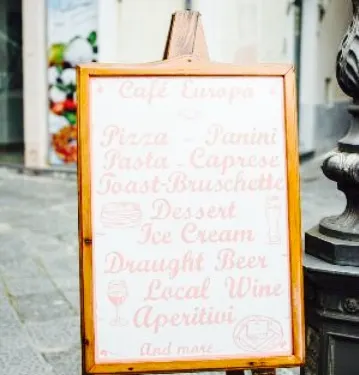 Café Europa
Pizza - Panini
Pasta - Caprese
Toast-Bruschette
Dessert
Ice Cream
Draught Beer
Local Wine
Aperitivi
And more...